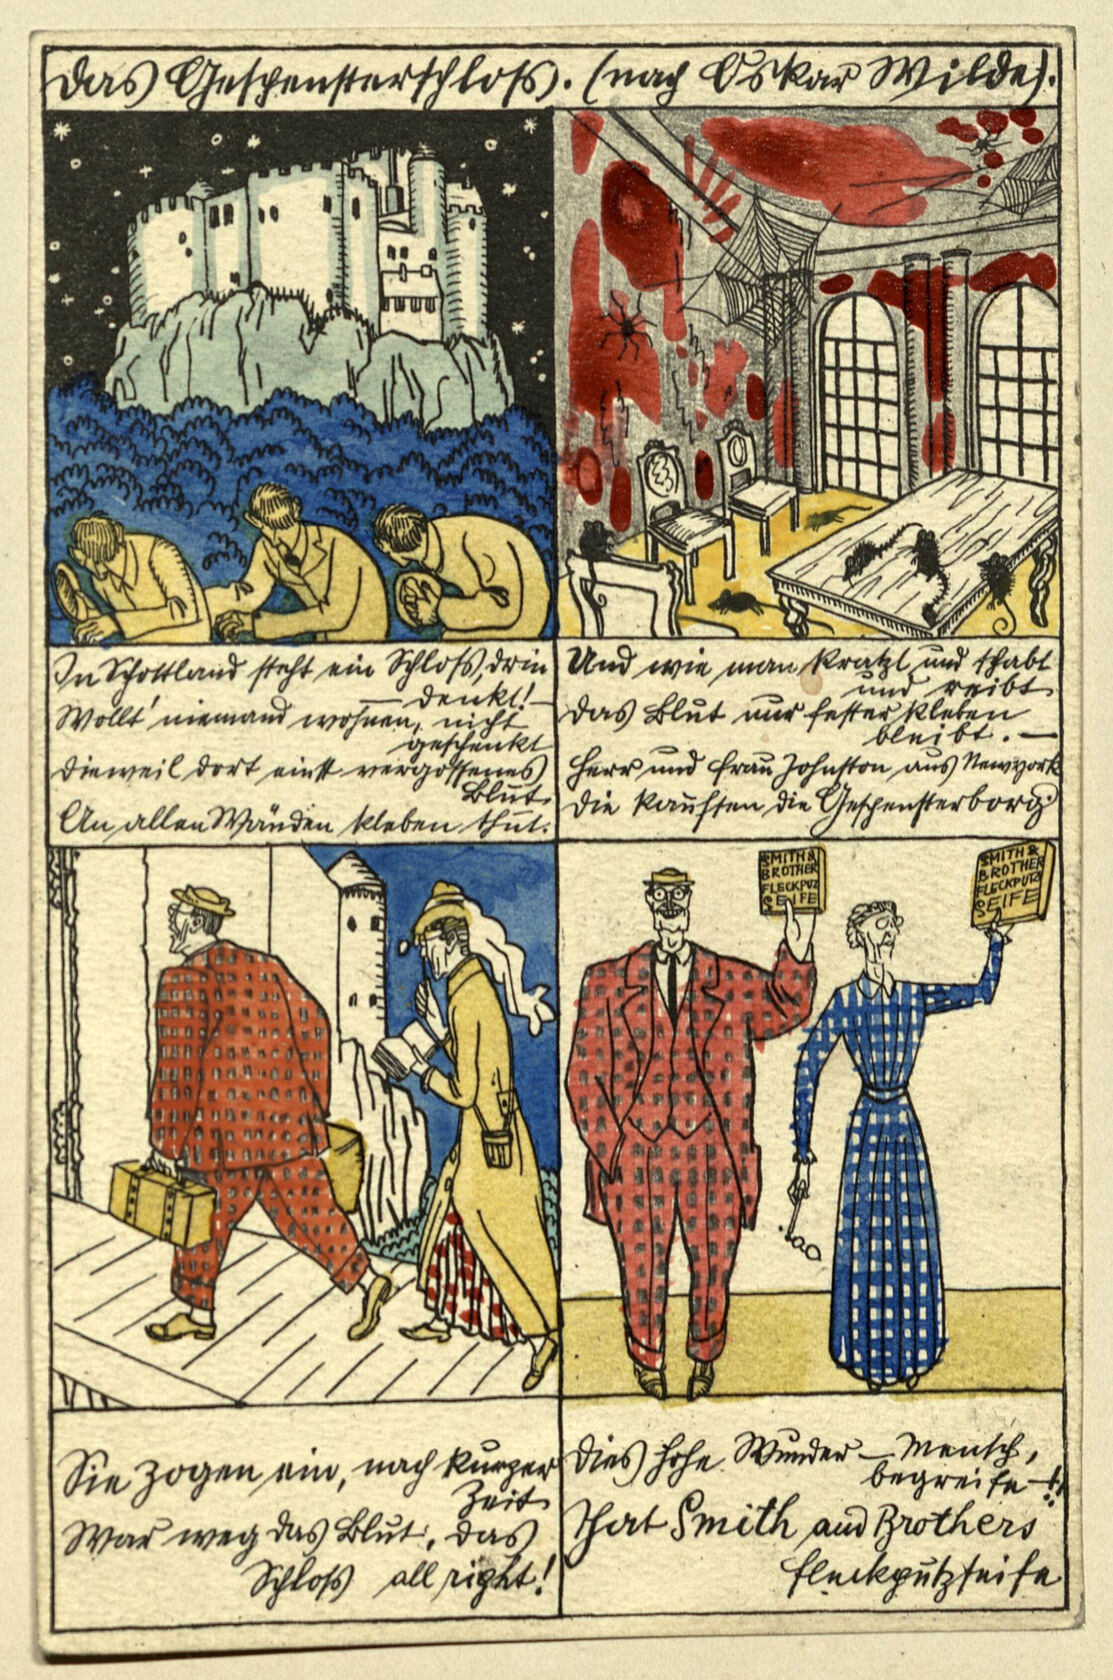 Das Gespensterschloss. (nach Oskar Wilde).
In Schottland steht ein Schloss, drin
— denkt! —
Wollt' niemand wohnen, nicht
geschenkt
Dieweil dort einst vergossenes
Blut
An allen Wänden kleben thut.
Und wie man kratzt und schabt
und reibt
Das Blut nur fester kleben
bleibt. —
Herr und Frau Johnston aus Newyork
Die kauften die Gespensterborg
SMITH &
BROTHER
FLECKPUZ
SEIFE
SMITH &
BROTHER
FLECKPUTZ
SEIFE
Sie zogen ein, nach kurzer
Zeit
War weg das Blut, das
Schloss all right!
Dies hohe Wunder — Mensch,
begreife —!
That Smith and Brothers
Fleckputzseife